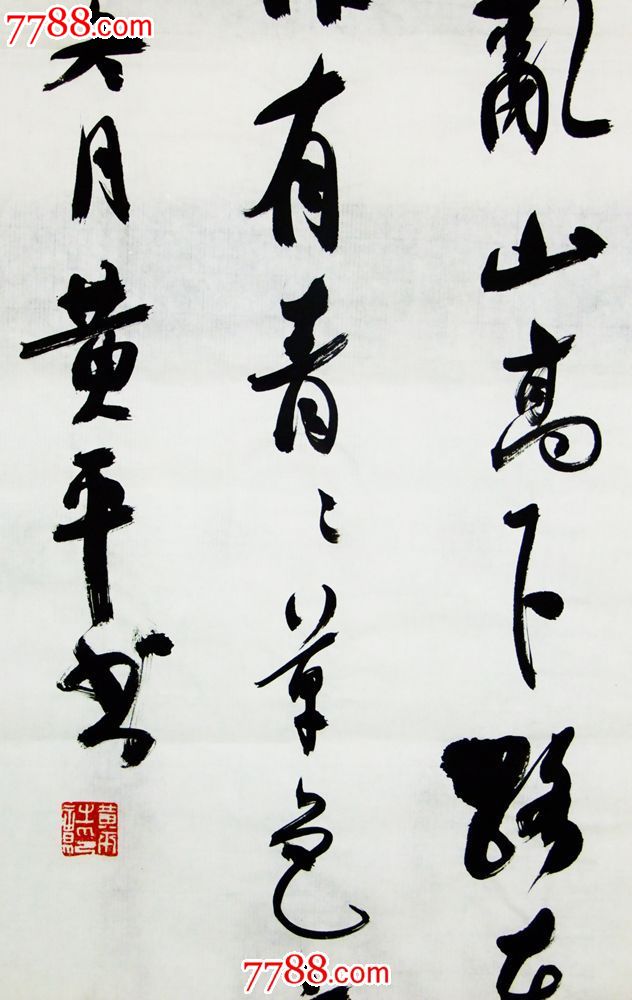 7788.com
亂山高下路
有青青草色
月黄平书
黄平
7788.com